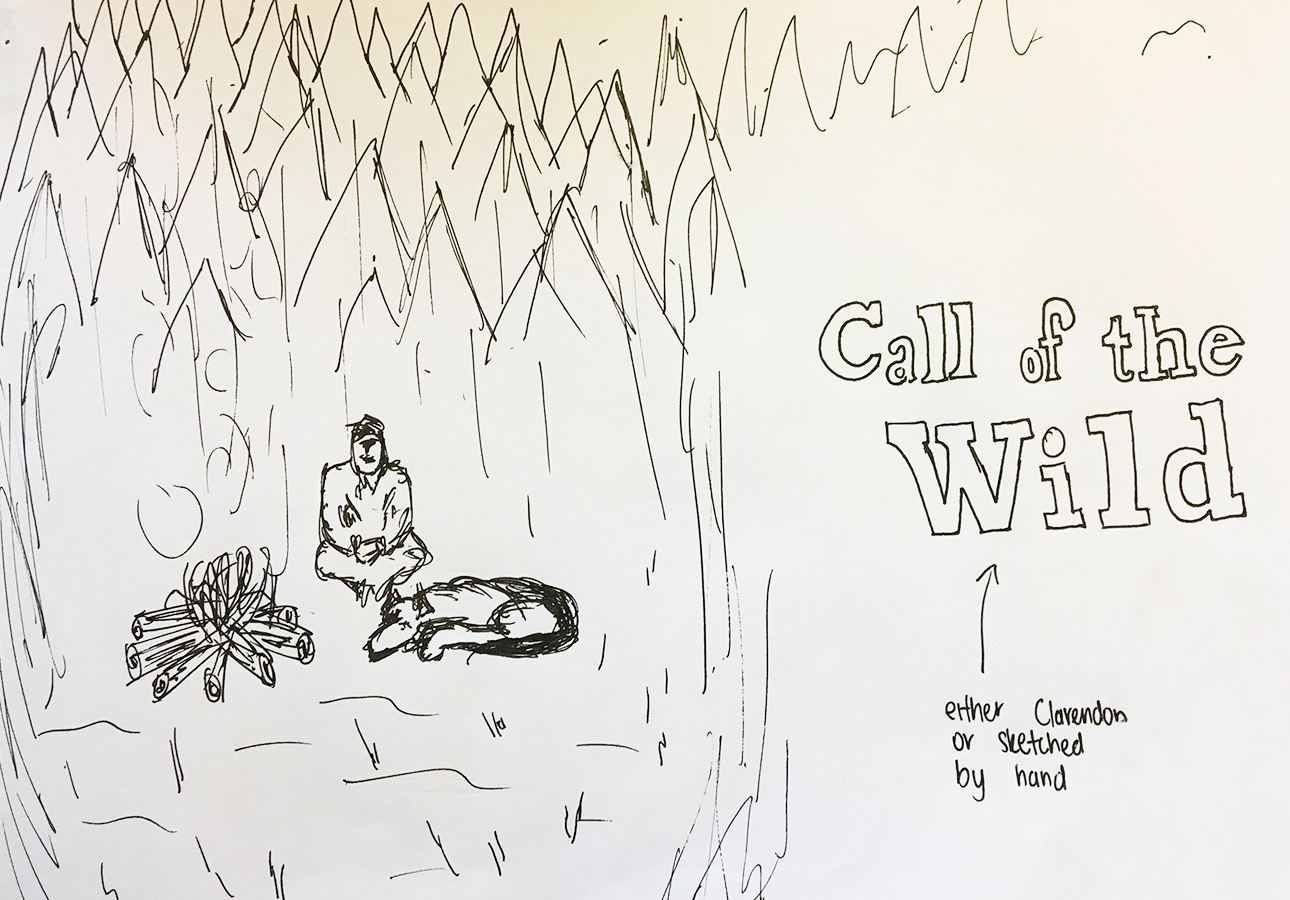 Call of the
Wild
either Clarendon
or sketched
by hand